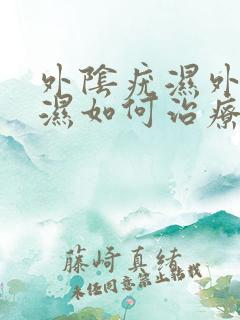 外陰疣濕外
濕如何治療
藤崎真緒
未任同意禁止转載